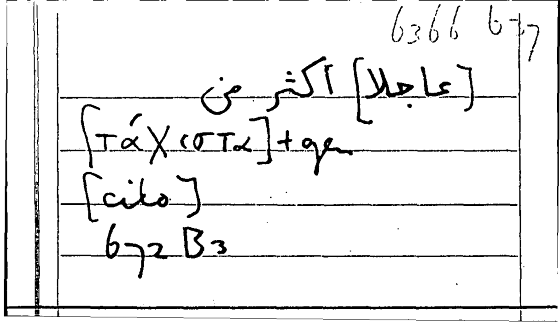 6366 627
[عاجلا] اكثر من
[τάχιστα] + gen
[cito]
672 B3